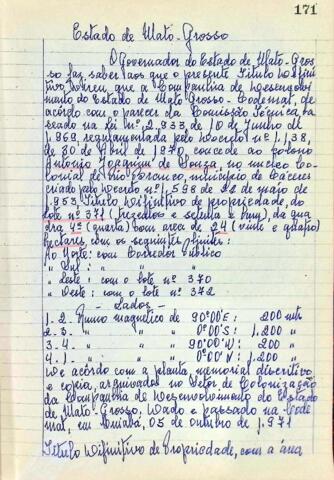 171
Estado de Mato-Grosso
O Governador do Estado de Mato-Gros-
so faz saber aos que o presente Titulo Difini
tivo virem, que a Companhia de Desenvolvi
mento do Estado de Mato-Grosso-Codemat, de
acôrdo com o parecer da Comissão Técnica ba
seado na lei nº 2.933, de 10 de junho de
1.969 regulamentada pelo Decreto nº 1.138,
de 30 de Abril de 1970 concede ao colono
Antonio Joaquim de Souza, no nucleo Co
lonial de Rio Branco, municipio de Cáceres
criado pelo Decreto nº 1.598 de 22 de maio de
1.953, Titulo Difinitivo de propriedade, do
lote nº 371 (trezentos e setenta e hum), da qua
dra 4ª (quarta) com area de 24 (vinte e quatro)
hectares com os seguintes limites:
Ao Norte: com Corredor Publico
" Sul: "
" Leste: com o lote nº 370
" Oeste: com o lote nº 372
- Lados -
1-2- Rumo magnetico de 90º00'E: 200 mts
2-3- " " " 0º00'S: 1.200 "
3-4- " " " 90º00'W: 200 "
4-1- " " " 0º00'N: 1.200 "
De acôrdo com a planta, memorial discritivo
e copia, arquivados no Setor de Colonização
da Companhia de Desenvolvimento do Estado
de Mato-Grosso, Dado e passado na Code
mat, em Cuiabá, 05 de outubro de 1.971
Titulo Difinitivo de Propriedade, com a área